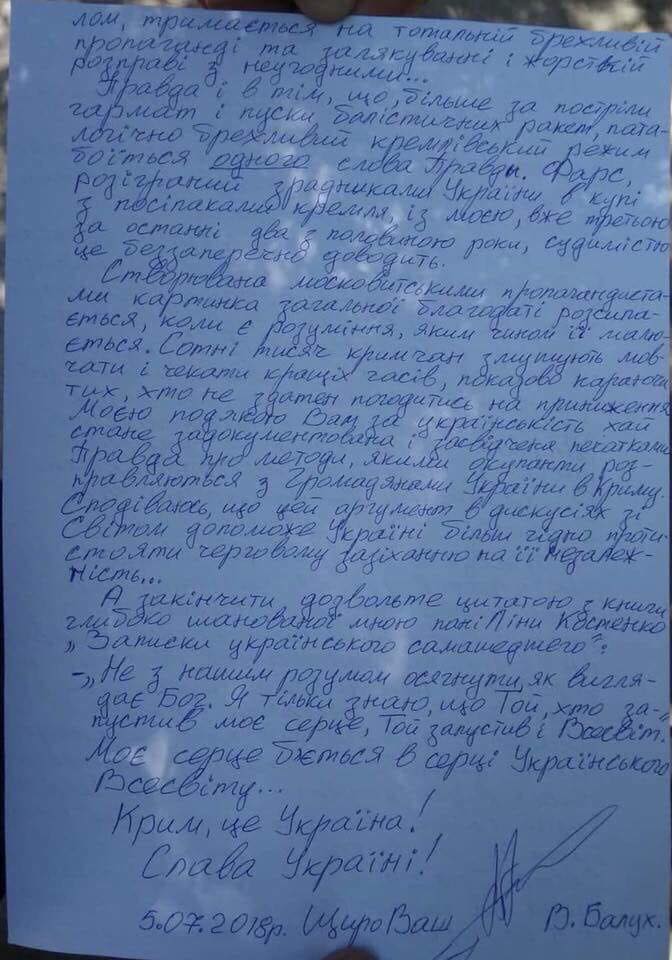 лом, тримається на тотальній брехливій
пропаганді та залякуванні і жорсткій
розправі з неугодними...
Правда і в тім, що, більше за постріли
гармат і пуски балістичних ракет, пата-
логічно брехливий кремлівський режим
боїться одного слова Правди. Фарс,
розіграний зрадниками України в купі
з посіпаками кремля, із моєю, вже третьою
за останні два з половиною роки, судимістю
це беззаперечно доводить.
Створювана московитськими пропагандиста-
ми картинка загальної благодаті розсипа-
ється, коли є розуміння, яким чином її малю-
ється. Сотні тисяч кримчан змушують мов-
чати і чекати кращіх часів, показово караючи
тих, хто не здатен погодитись на приниження
Моєю подякою Вам за українськість хай
стане задокументована і засвідчена печатками
Правда про методи, якими окупанти роз-
правляються з Громадянами України в Криму
Сподіваюсь, що цей аргумент в дискусіях зі
Світом допоможе Україні більш гідно проти-
стояти черговому зазіханню на її незалеж-
ність...
А закінчити дозвольте цитатою з книги
глибоко шанованої мною пані Ліни Костенко
„Записки українського самашедшего":
-„Не з нашим розумом осягнути, як вигля-
дає Бог. Я тільки знаю, що Той, хто за-
пустив моє серце, Той запустив і Всесвіт.
Моє серце б'ється в серці Українського
Всесвіту...
Крим, це Україна!
Слава Україні!
5.07.2018р. Щиро Ваш В. Балух.